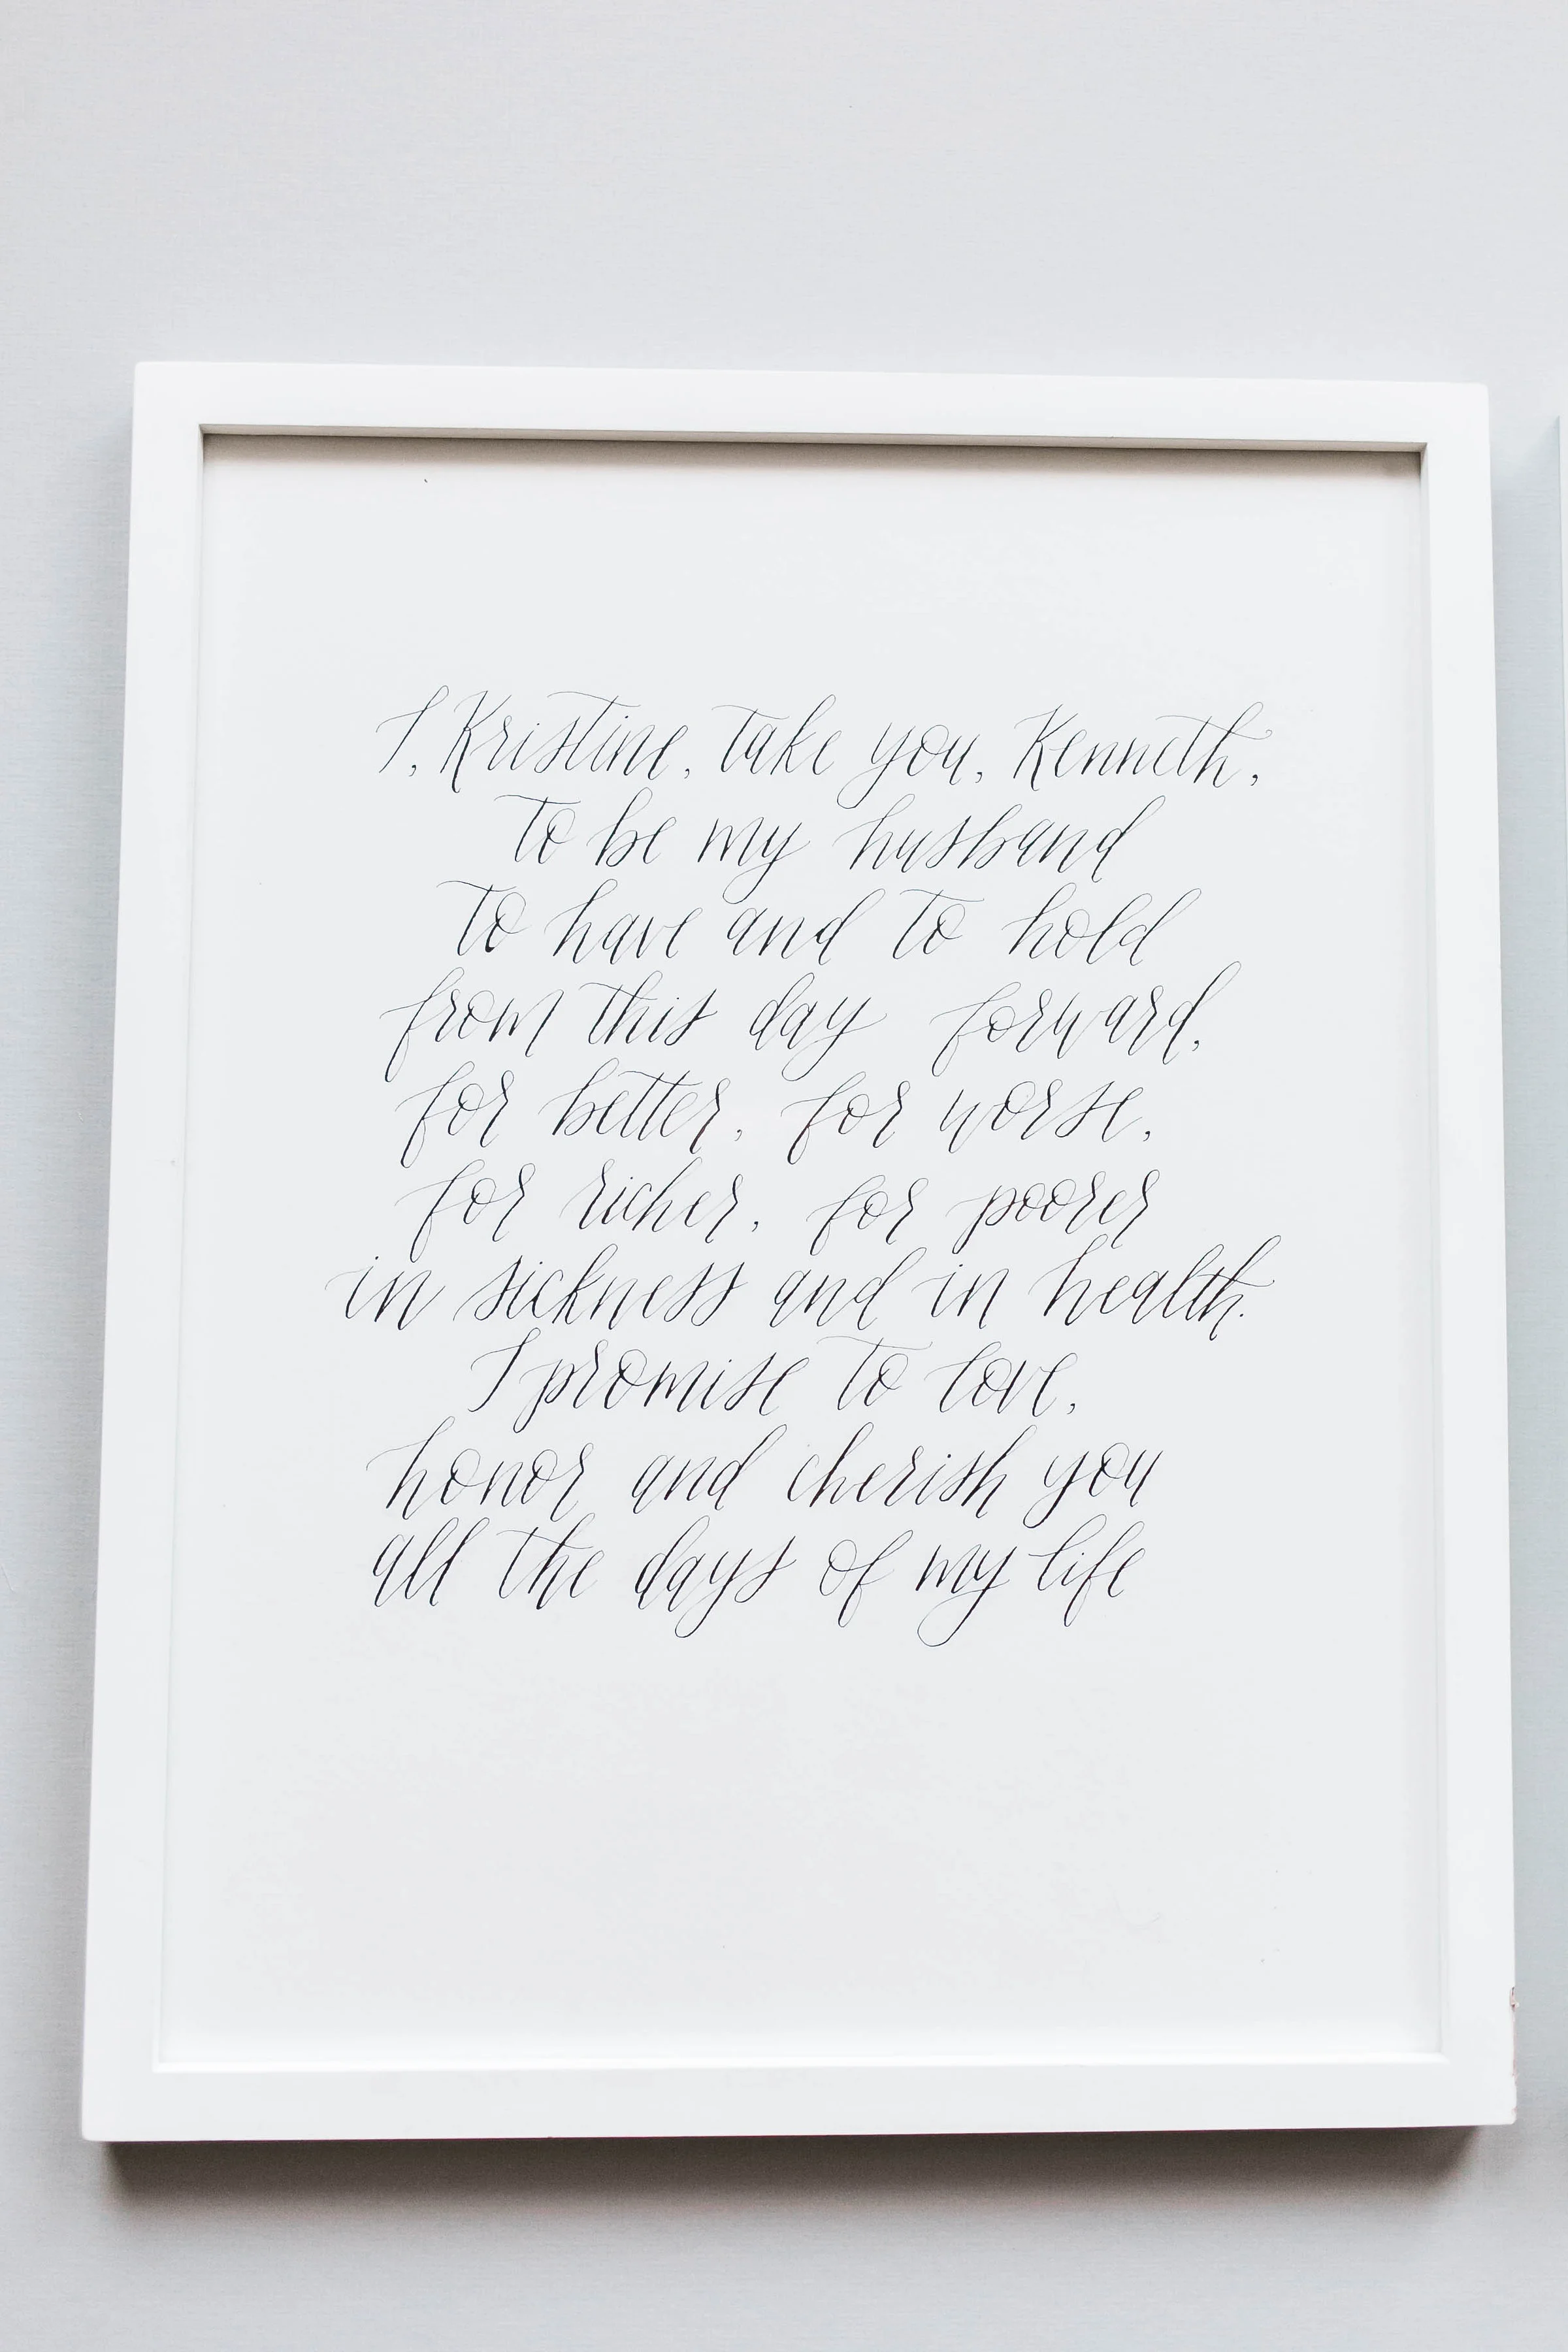 I, Kristine, take you, Kenneth,
to be my husband
to have and to hold
from this day forward,
for better, for worse,
for richer, for poorer
in sickness and in health.
I promise to love,
honor and cherish you
all the days of my life